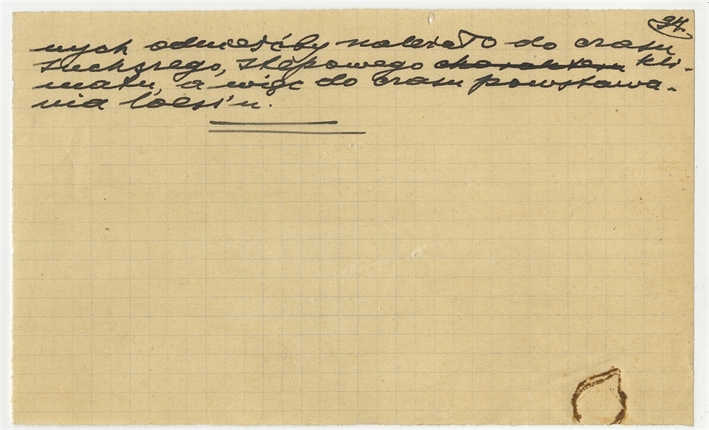 34.
nych odnieśćby należało do czasu
suchszego, stepowego ~~charakteru~~ kli-
matu, a więc do czasu powstawa-
nia loess'u.